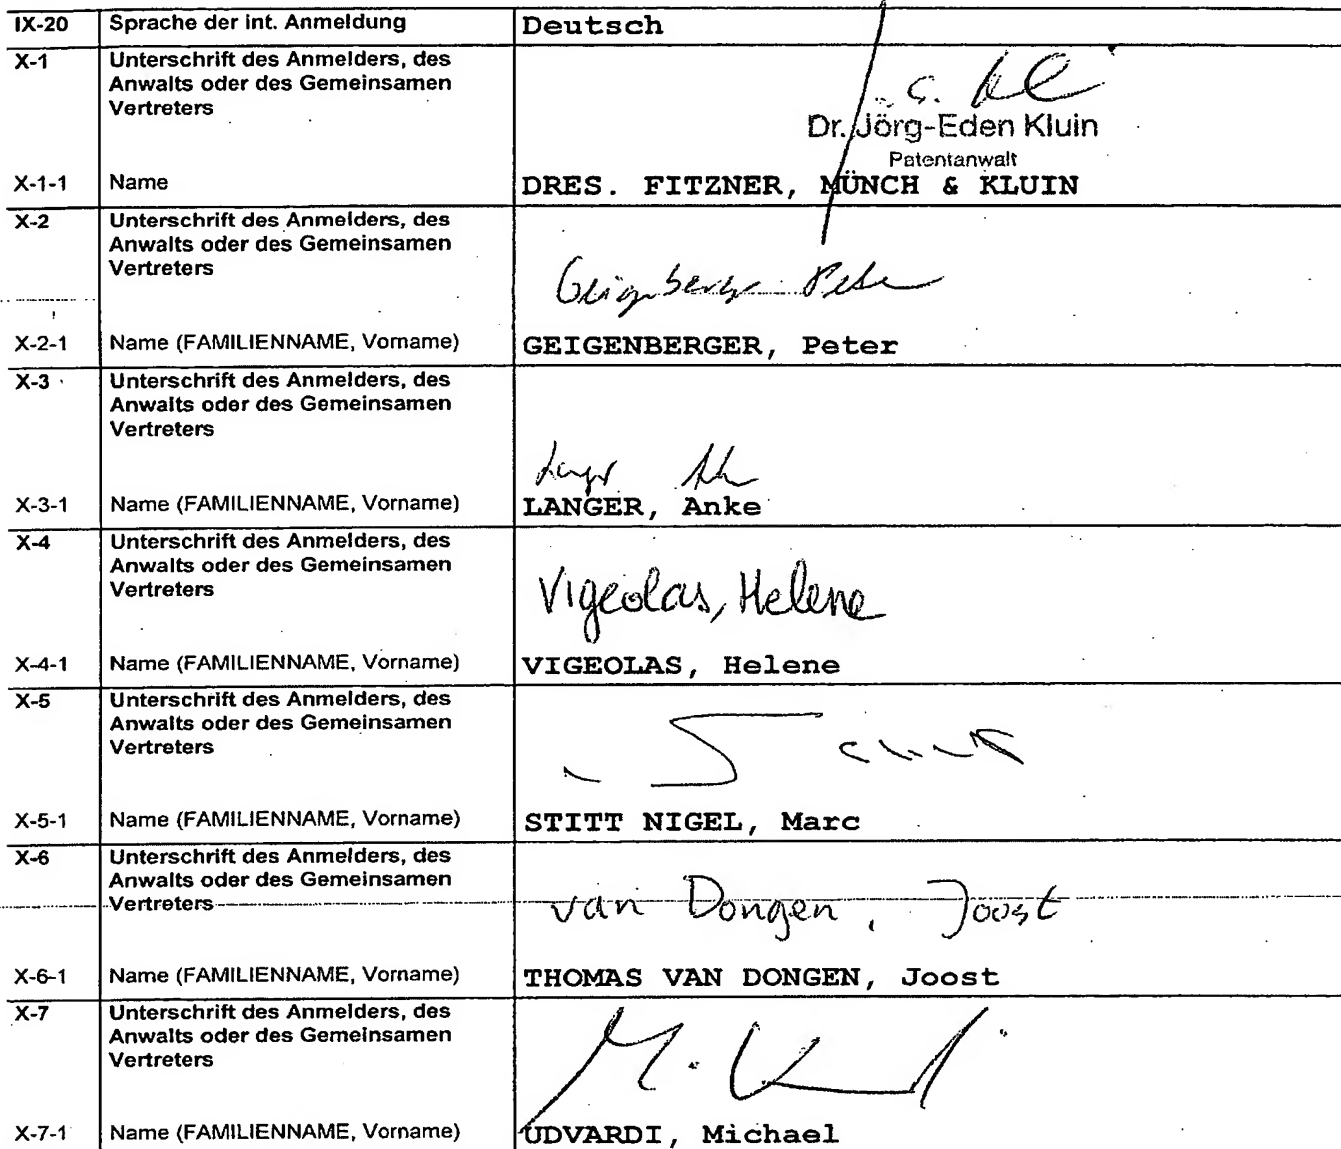 IX-20 Sprache der int. Anmeldung Deutsch
X-1 Unterschrift des Anmelders, des
Anwalts oder des Gemeinsamen
Vertreters
Dr. Jörg-Eden Kluin
Patentanwalt
X-1-1 Name DRES. FITZNER, MÜNCH & KLUIN
X-2 Unterschrift des Anmelders, des
Anwalts oder des Gemeinsamen
Vertreters
Geigenberger Peter
X-2-1 Name (FAMILIENNAME, Vorname) GEIGENBERGER, Peter
X-3 Unterschrift des Anmelders, des
Anwalts oder des Gemeinsamen
Vertreters
X-3-1 Name (FAMILIENNAME, Vorname) LANGER, Anke
X-4 Unterschrift des Anmelders, des
Anwalts oder des Gemeinsamen
Vertreters
Vigeolas, Helene
X-4-1 Name (FAMILIENNAME, Vorname) VIGEOLAS, Helene
X-5 Unterschrift des Anmelders, des
Anwalts oder des Gemeinsamen
Vertreters
X-5-1 Name (FAMILIENNAME, Vorname) STITT NIGEL, Marc
X-6 Unterschrift des Anmelders, des
Anwalts oder des Gemeinsamen
Vertreters
van Dongen, Joost
X-6-1 Name (FAMILIENNAME, Vorname) THOMAS VAN DONGEN, Joost
X-7 Unterschrift des Anmelders, des
Anwalts oder des Gemeinsamen
Vertreters
X-7-1 Name (FAMILIENNAME, Vorname) UDVARDI, Michael